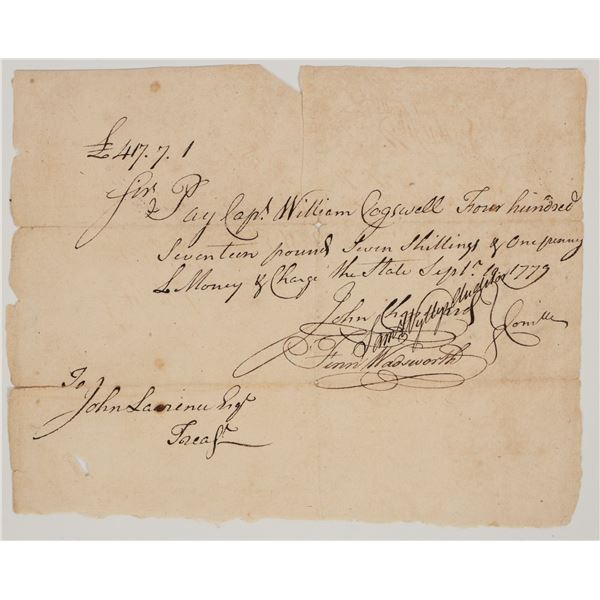 £417.7.1
Sir,
Pay Capt. William Cogswell Four hundred
Seventeen pound Seven Shillings & One penny
L Money & Charge the State Septr. 1779
John
Fenn Wadsworth
Comtee
To
John Lawrence Esqr
Treasr